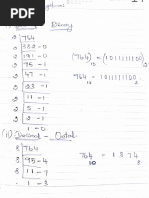 2 | 764
2 | 382 - 0
2 | 191 - 0
2 | 95 - 1
2 | 47 - 1
2 | 23 - 1
2 | 11 - 1
2 | 5 - 1
2 | 2 - 1
1 - 0
(764)10 = (1011111100)2
764 10 = 1011111100 2
(ii) Decimal - Octal
8 | 764
8 | 95 - 4
8 | 11 - 7
1 - 3
764 10 = 1374 8